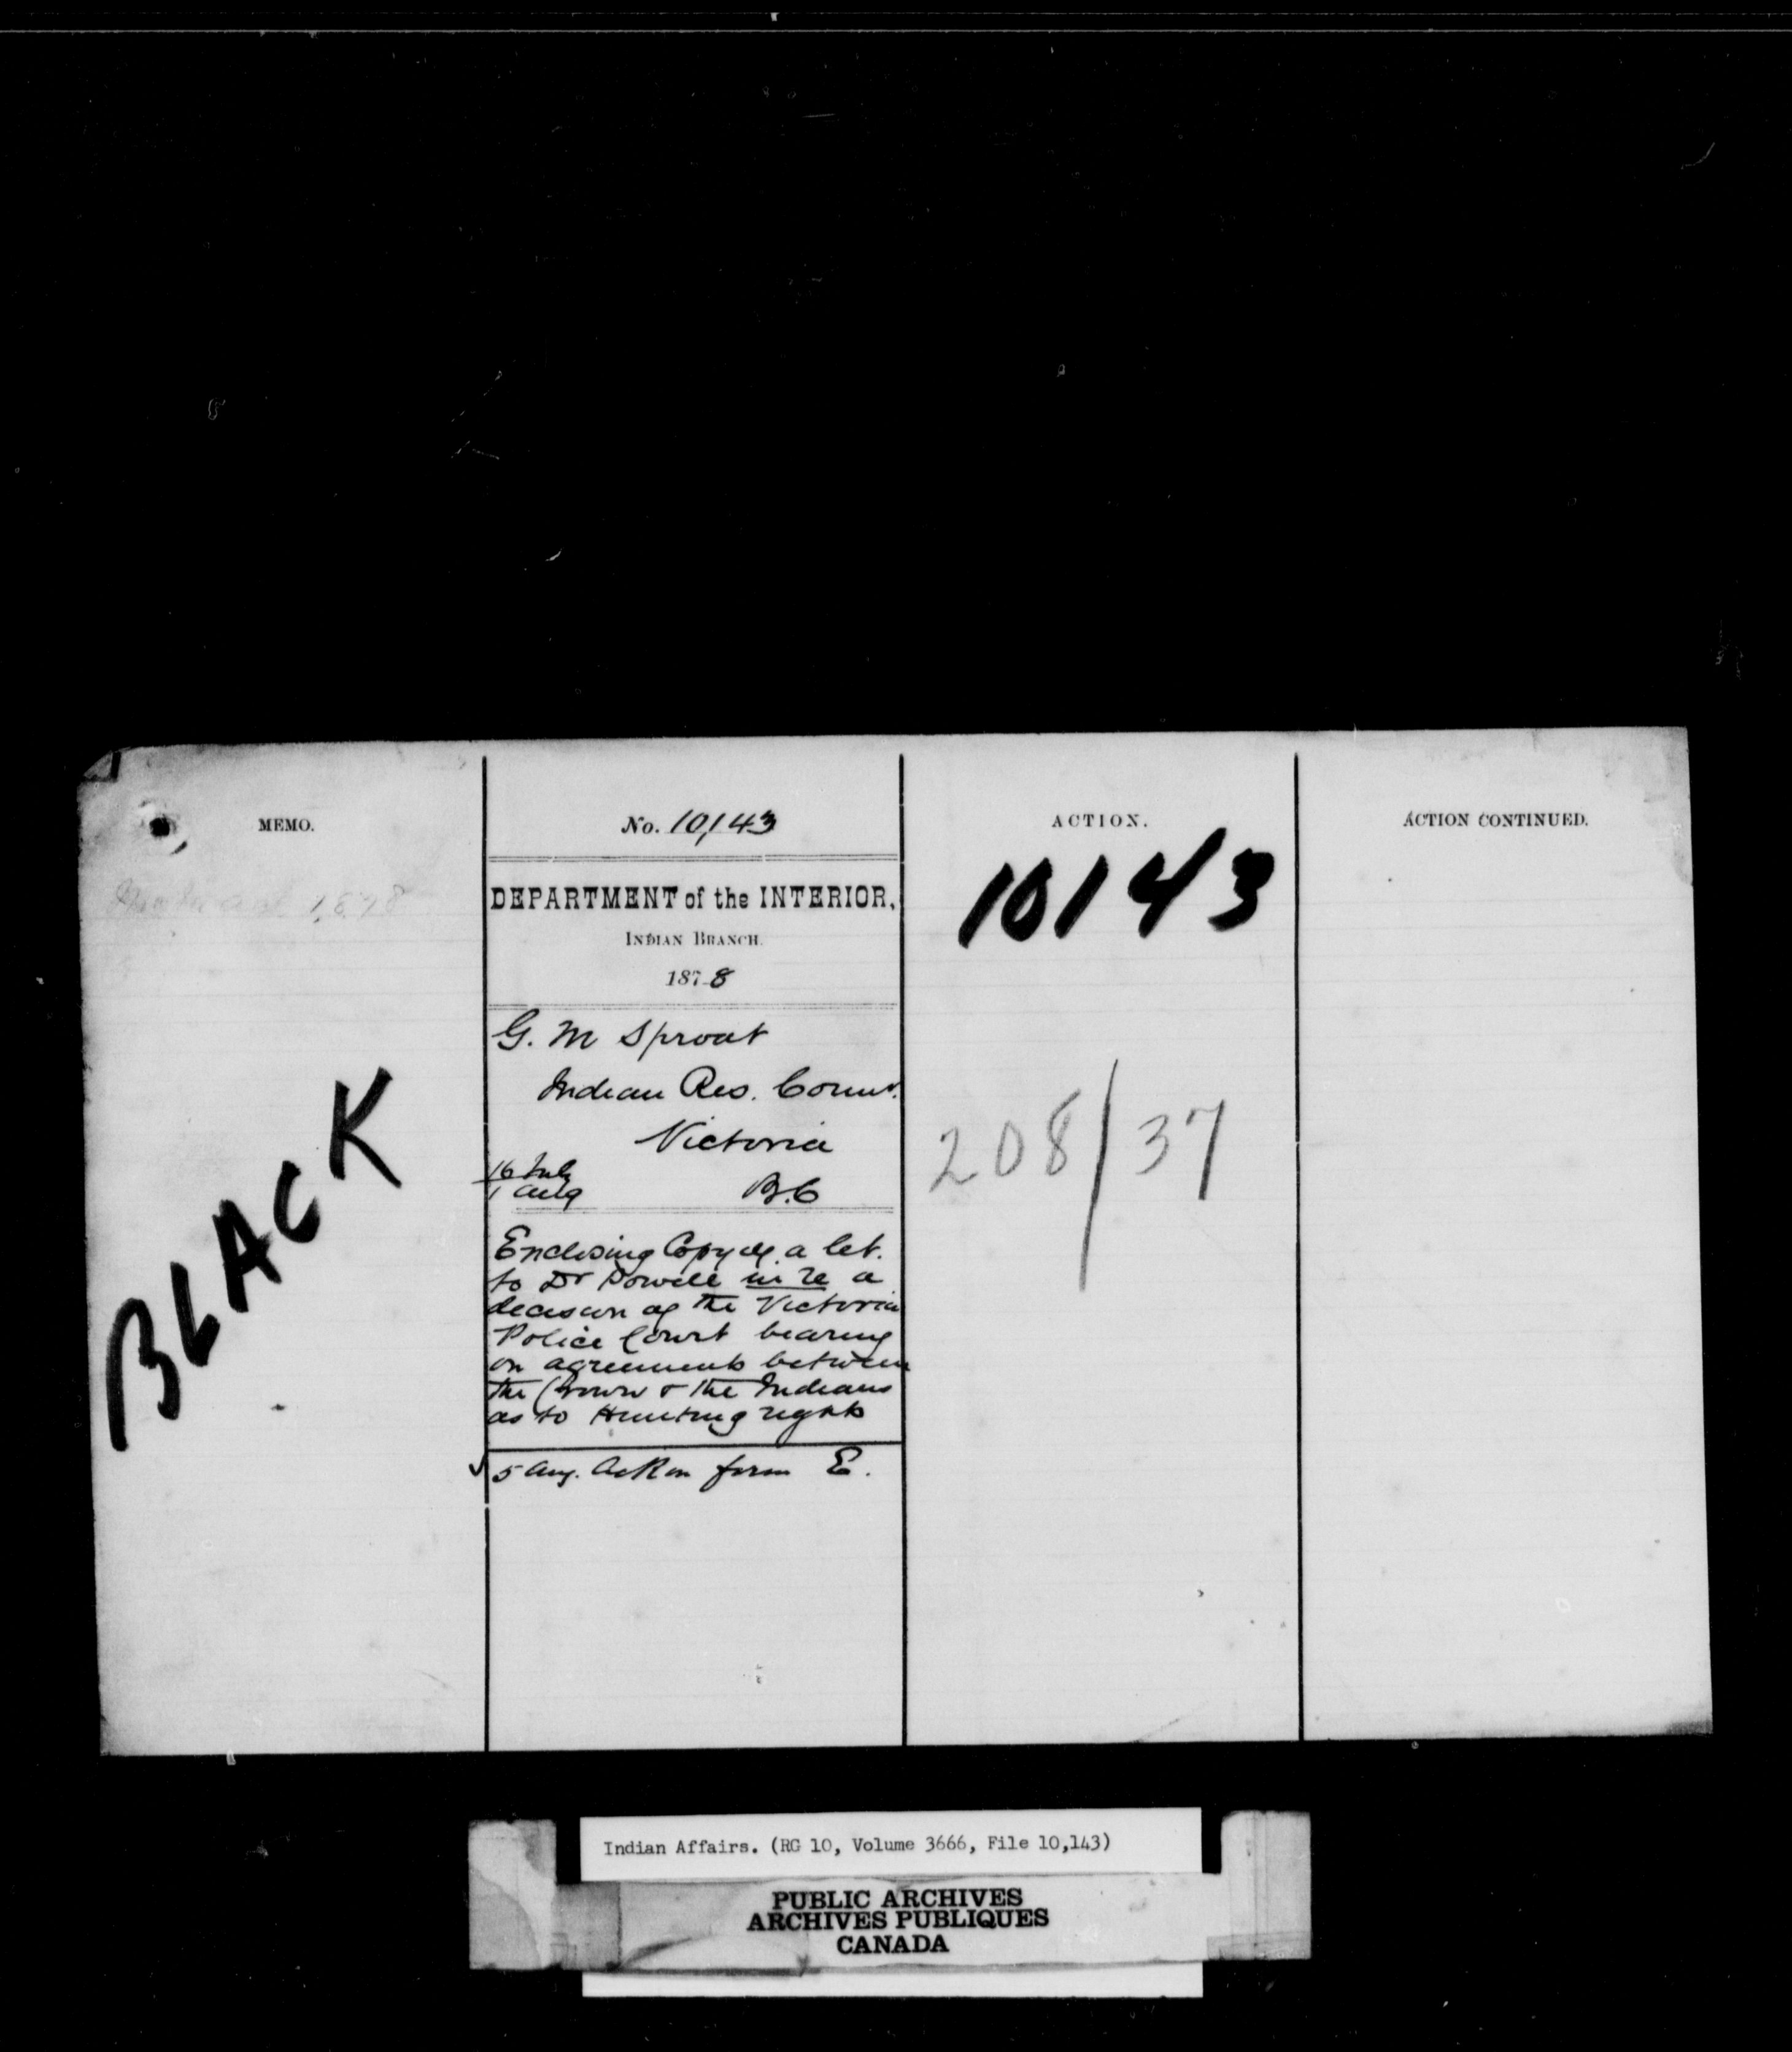 MEMO.
1878
BLACK
No. 10,143
DEPARTMENT of the INTERIOR,
INDIAN BRANCH.
1878
G. M Sproat
Indian Res. Commr.
Victoria
16 July
1 Aug
B.C
Enclosing Copy of a let.
to Dr Powell in re a
decision of the Victoria
Police Court bearing
on agreements between
the Crown & the Indians
as to Hunting rights
5 Aug. Ack on form E.
ACTION.
10143
208/37
ACTION CONTINUED.
Indian Affairs. (RG 10, Volume 3666, File 10,143)
PUBLIC ARCHIVES
ARCHIVES PUBLIQUES
CANADA